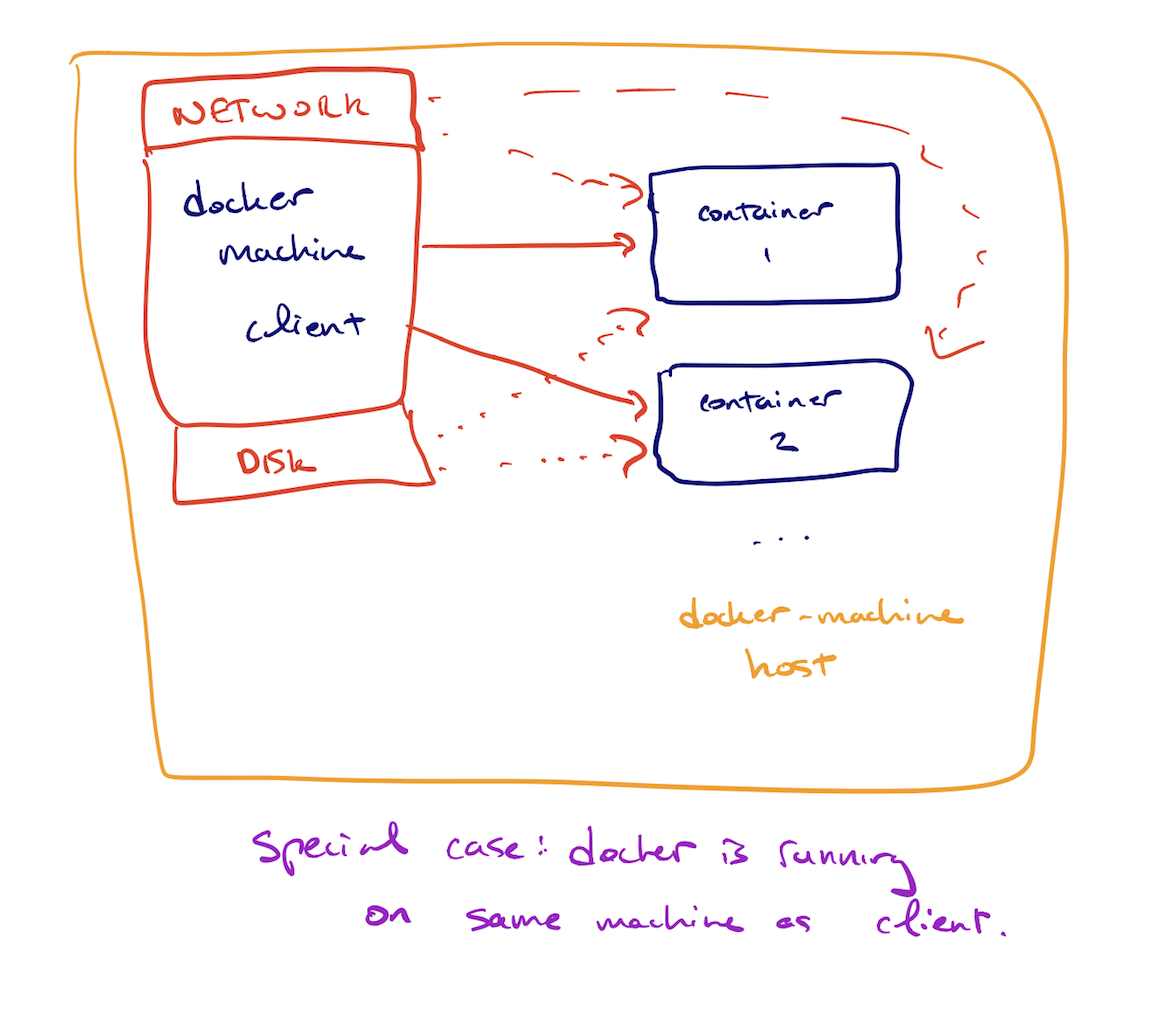 NETWORK
docker
machine
client
DISK
container
1
container
2
...
docker-machine
host
special case: docker is running
on same machine as client.